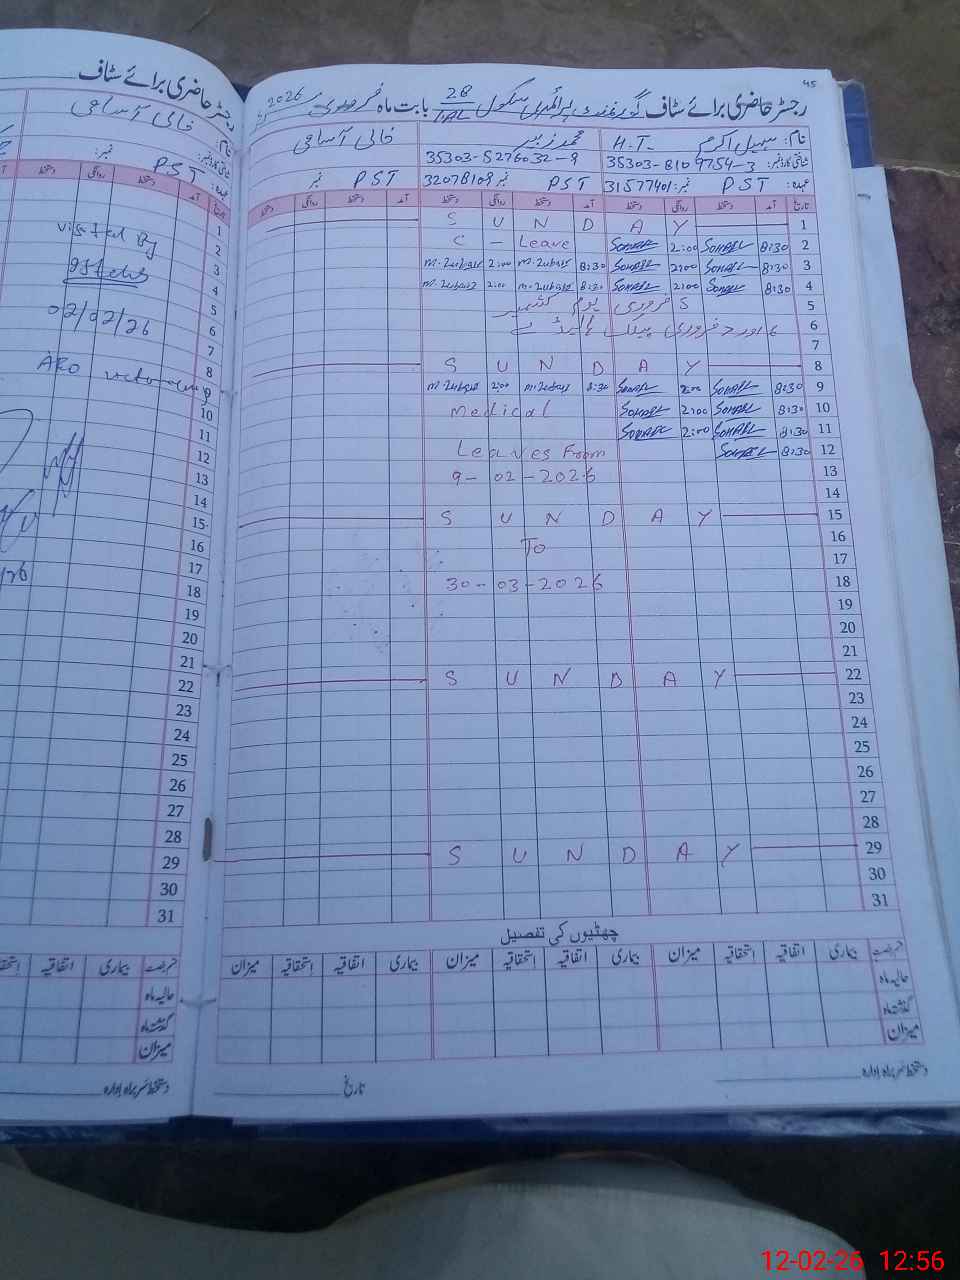 رجسٹر حاضری برائے سٹاف
خالی آسامی
نام:
PST
عہدہ:
تاریخ آمد دستخط روانگی دستخط
1
2
3
4
5
6
7
8
9
10
11
12
13
14
15
16
17
18
19
20
21
22
23
24
25
26
27
28
29
30
31
Visited By
02/02/26
AEO
فرصت بیماری اتفاقیہ استحقاقیہ
حالیہ ماہ
گذشتہ ماہ
میزان
دستخط سربراہ ادارہ
45
رجسٹر حاضری برائے سٹاف گورنمنٹ پرائمری سکول 28/TAL بابت ماہ فروری 2026
نام: سہیل اکرم H.T. محمد زبیر خالی آسامی
شناختی کارڈ نمبر: 35303-8109754-3 35303-5276032-9
عہدہ: PST نمبر: 31577401 PST نمبر 32078109 PST نمبر
تاریخ آمد دستخط روانگی دستخط آمد دستخط روانگی دستخط آمد دستخط روانگی دستخط
1 S U N D A Y
2 8:30 Sohail 2:00 Sohail C - Leave
3 8:30 Sohail 2:00 Sohail 8:30 M. Zubair 2:00 M. Zubair
4 8:30 Sohail 2:00 Sohail 8:30 M. Zubair 2:00 M. Zubair
5 5 فروری یوم کشمیر
6 6 اور 7 فروری پبلک ہالیڈے
7
8 S U N D A Y
9 8:30 Sohail 2:00 Sohail 8:30 M. Zubair 2:00 M. Zubair
10 8:30 Sohail 2:00 Sohail Medical
11 8:30 Sohail 2:00 Sohail
12 8:30 Sohail Leaves From
13 9-02-2026
14
15 S U N D A Y
16 To
17
18 30-03-2026
19
20
21
22 S U N D A Y
23
24
25
26
27
28
29 S U N D A Y
30
31
چھٹیوں کی تفصیل
فرصت بیماری اتفاقیہ استحقاقیہ میزان بیماری اتفاقیہ استحقاقیہ میزان بیماری اتفاقیہ استحقاقیہ میزان
حالیہ ماہ
گذشتہ ماہ
میزان
دستخط سربراہ ادارہ تاریخ
12-02-26 12:56